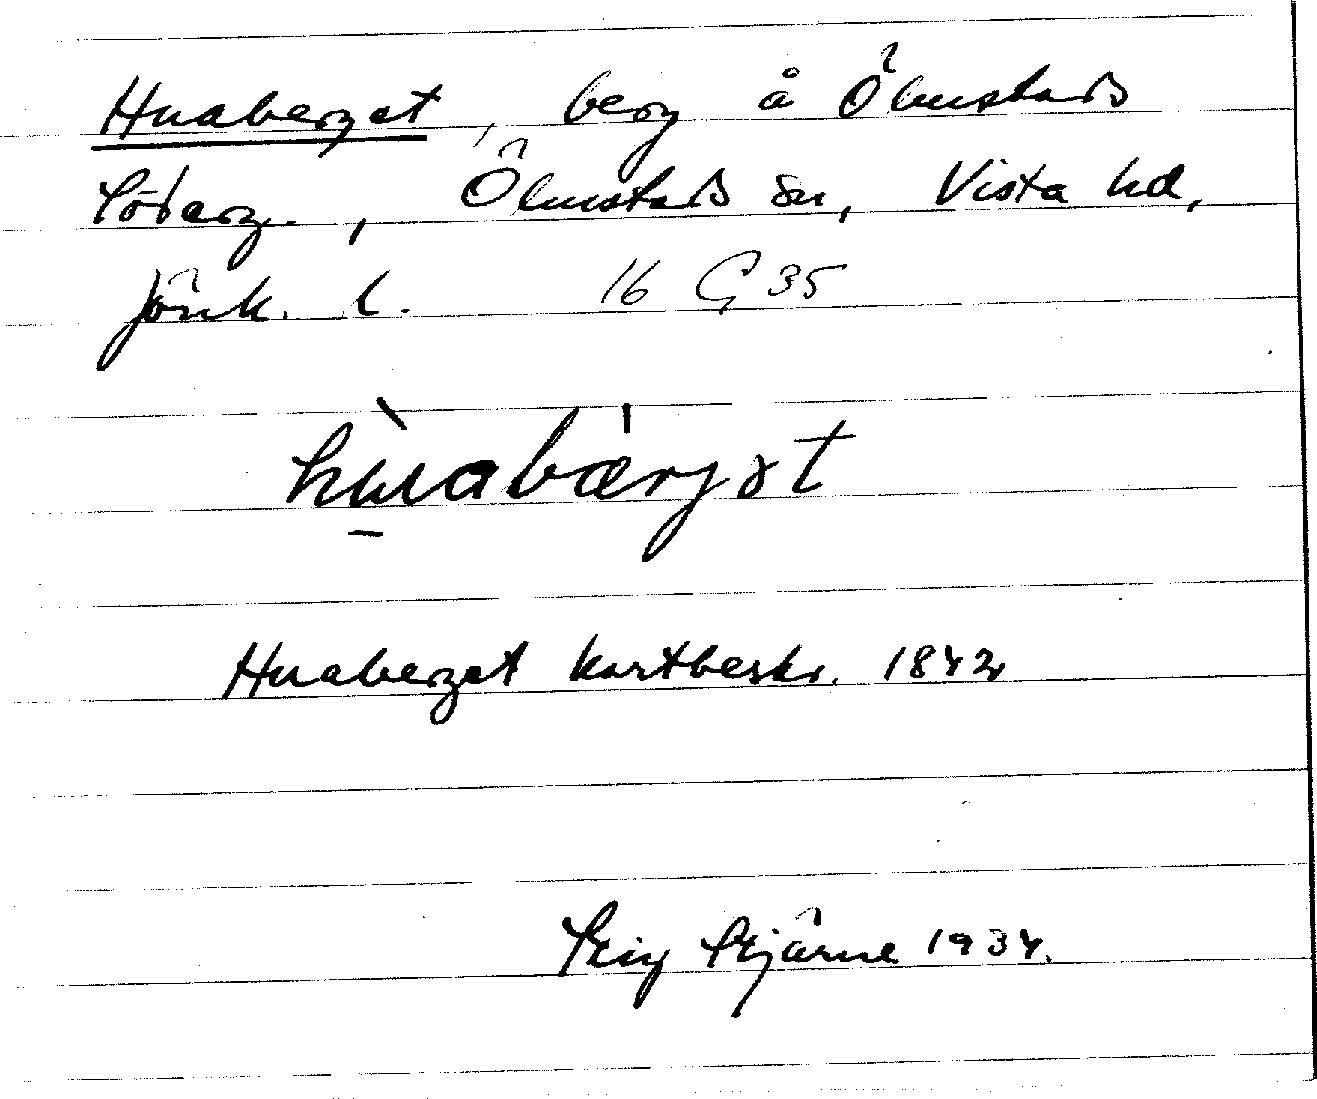 Huaberget, berg å Ölmstads
Söderg., Ölmstads sn, Vista hd,
Jönk. l. 16 G 35
hùabær̍jət
Huaberget kartbeskr. 1842
Stig Stjärne 1934.